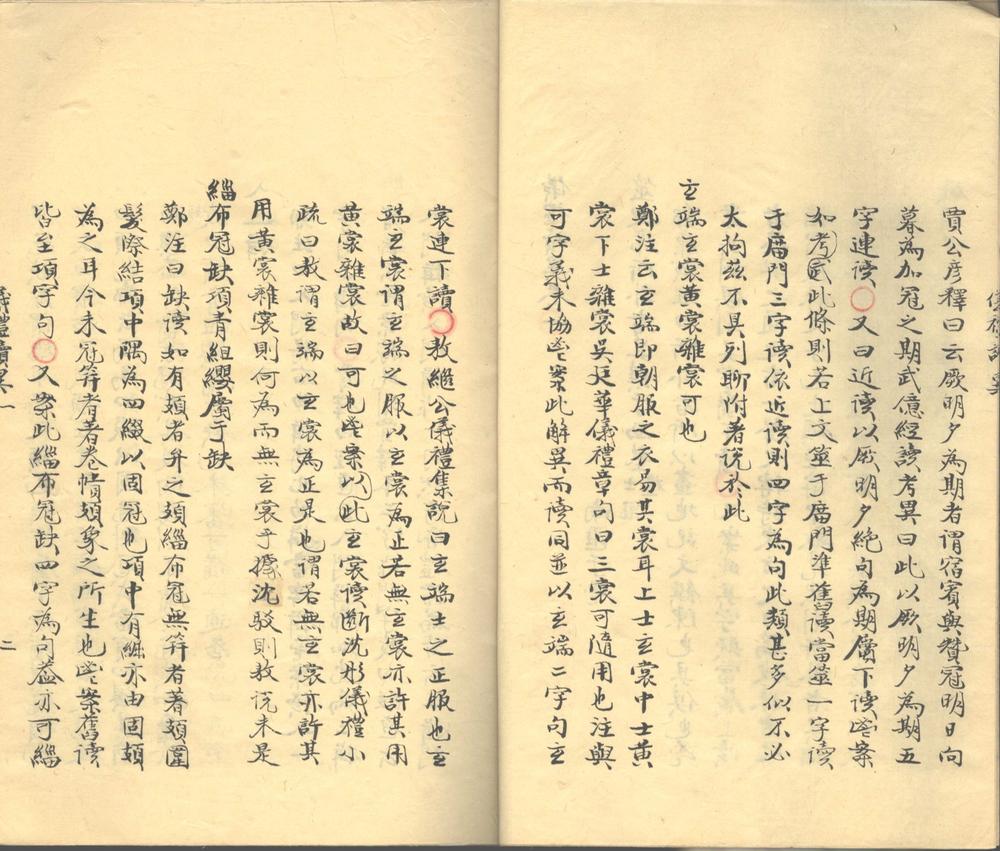 賈公彥釋曰云厥明夕為期者謂宿賓與贊冠明日向
暮為加冠之期武億經讀考異曰此以厥明夕為期五
字連讀〇又曰近讀以厥明夕絕句為期屬下讀㱔案
如考武此條則若上文筮于庿門準舊讀當筮一字讀
于庿門三字讀依近讀則四字為句此類甚多似不必
太拘茲不具列聊附著說於此
玄端玄裳黃裳雜裳可也
鄭注云玄端即朝服之衣易其裳耳上士玄裳中士黃
裳下士雜裳吳廷華儀禮章句曰三裳可隨用也注與
可字義未協㱔案此解異而讀同並以玄端二字句玄
裳連下讀〇敖繼公儀禮集說曰玄端士之正服也玄
端玄裳謂玄端之服以玄裳為正若無玄裳亦許其用
黃裳雜裳故曰可也㱔案以此玄裳讀斷沈彤儀禮小
疏曰敖謂玄端以玄裳為正是也謂若無玄裳亦許其
用黃裳雜裳則何為而無玄裳乎據沈駁則敖說未是
緇布冠缺項青組纓屬于缺
鄭注曰缺讀如有頍者弁之頍緇布冠無笄者著頍圍
髮際結項中隅為四綴以固冠也項中有䋝亦由固頍
為之耳今未冠笄者著卷幘頍象之所生也㱔案舊讀
皆至項字句〇又案此緇布冠缺四字為句蓋亦可緇
儀禮讀異一
二